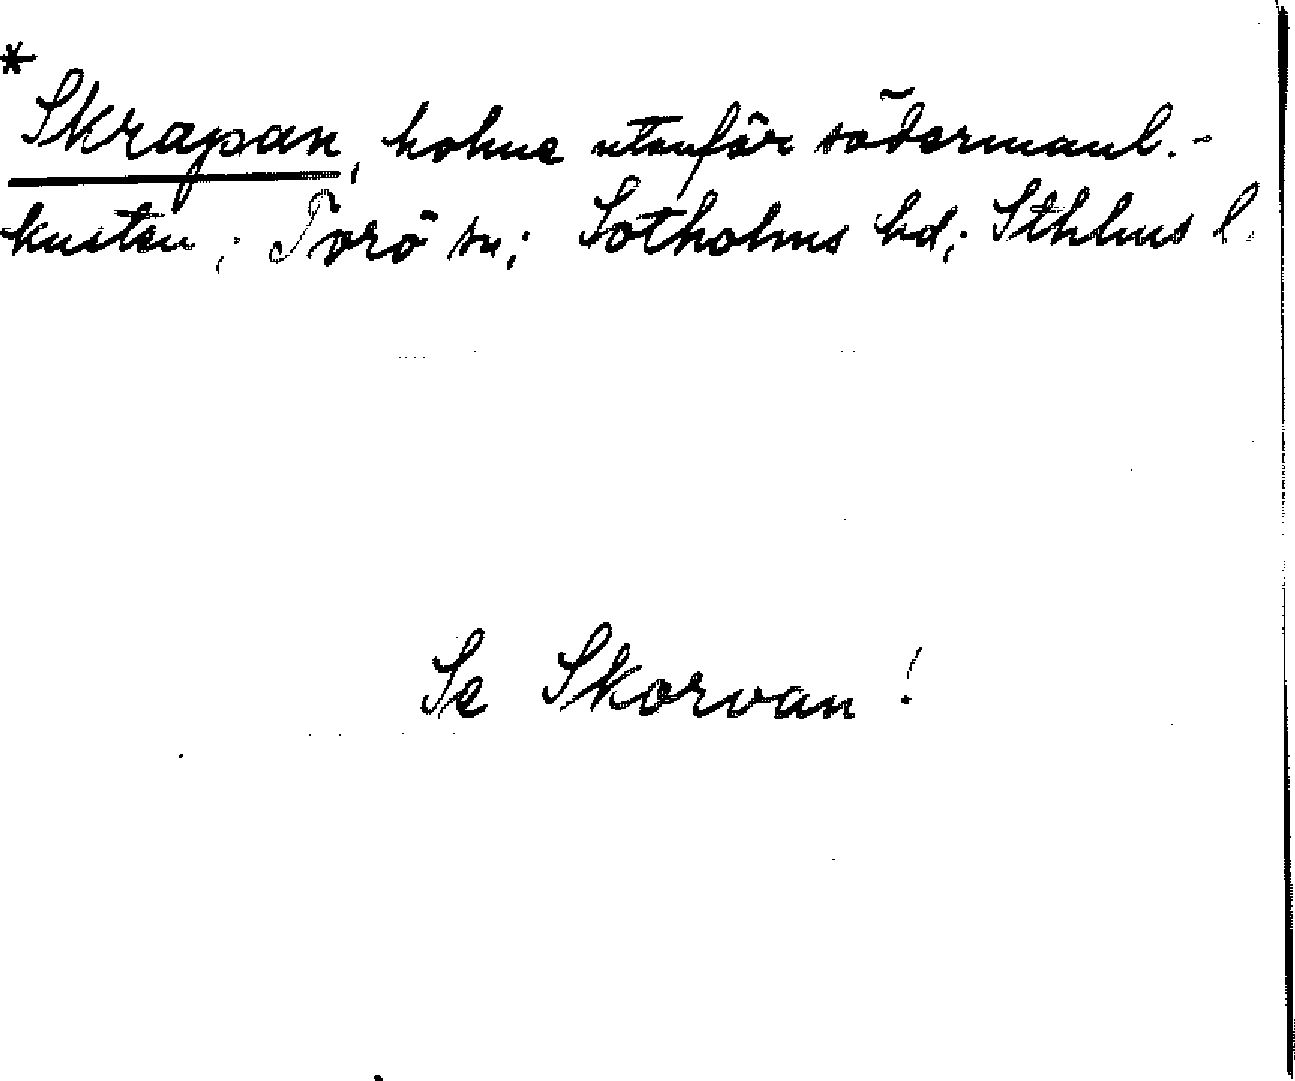 * Skrapan, holme utanför södermanl.-
kusten; Torö sn; Sotholms hd; Sthlms l.
Se Skorvan!